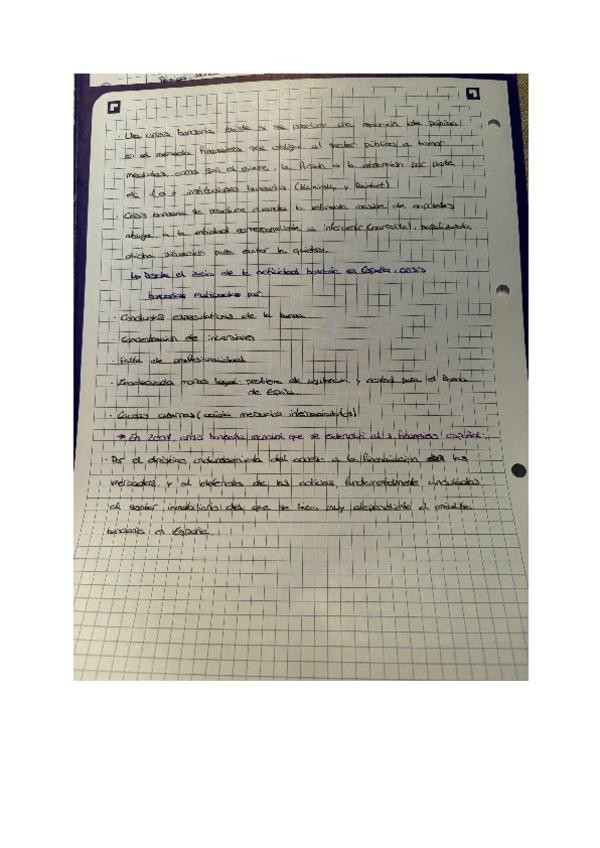 · Una crisis bancaria existe si se produce una reacción de pánico
en el mercado financiero que obligue al sector público a tomar
medidas, como son el cierre, la fusión o la absorción por parte
de 1 o + instituciones bancarias (Kaminsky y Reinhart)
· Crisis bancaria se produce cuando la retirada masiva de capitales
obliga a la entidad correspondiente a intervenir
dicha situación para evitar la quiebra.
↳ Desde el inicio de la actividad bancaria en España, crisis
bancarias por:
· Conductas especulativas de la banca
· Concentración de inversiones
· Falta de profesionalidad
· Inadecuado marco legal: problema de y control para el Banco
de España.
· Causas externas (crisis mercados internacionales)
→ En 2008, crisis bancaria mundial que se extendió al s. financiero español.
· Por el drástico endurecimiento del acceso a la financiación en los
mercados, y al deterioro de los activos, fundamentalmente vinculados
al sector inmobiliario del que se hizo muy dependiente el
bancario en España